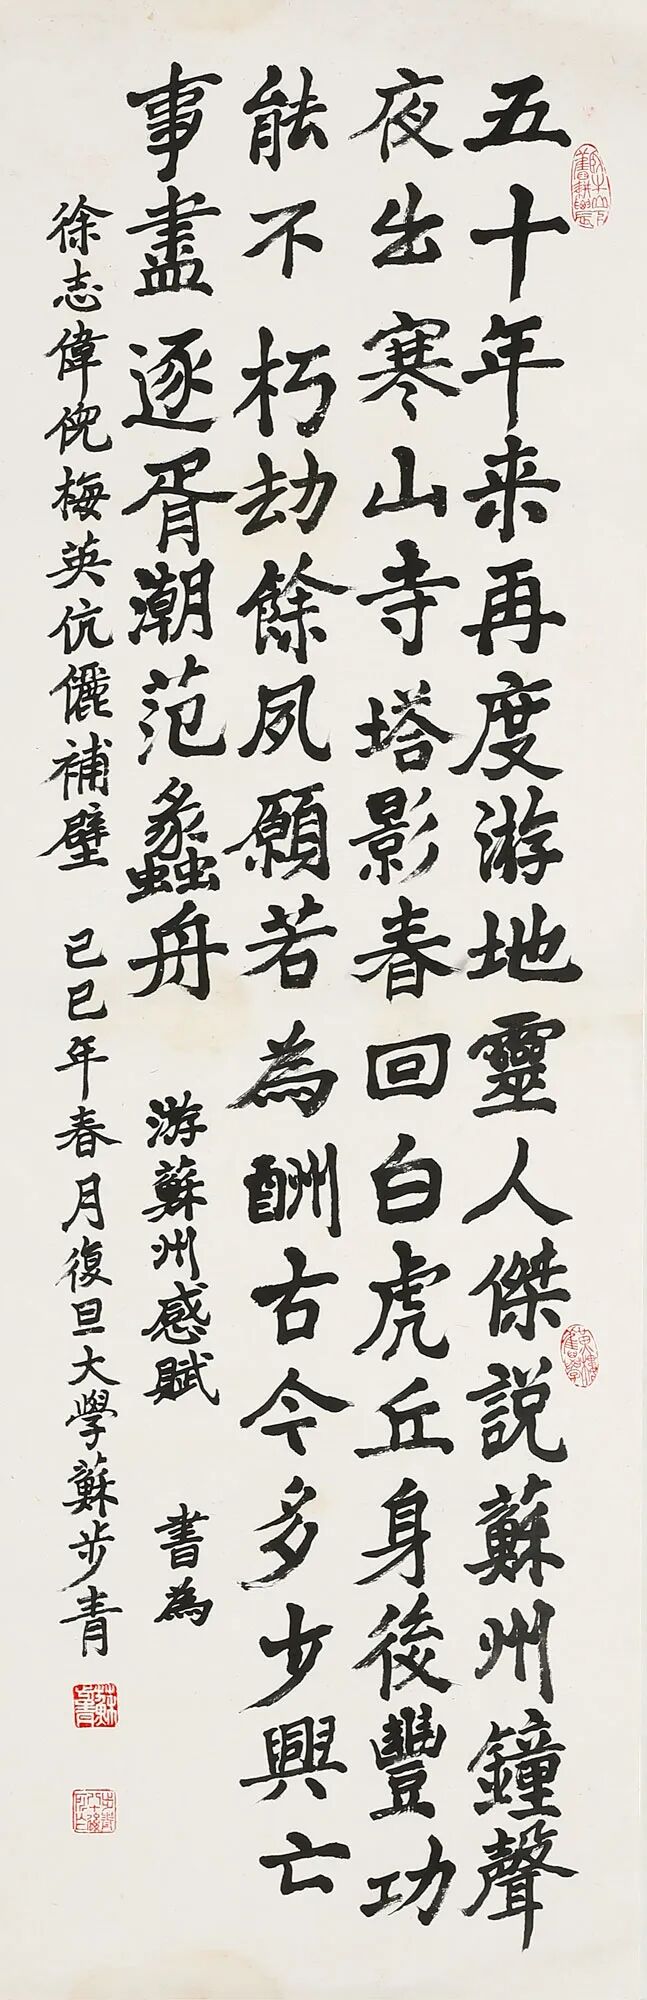 五十年来再度游地靈人傑説蘇州鐘聲
夜出寒山寺塔影春回白虎丘身後豐功
能不朽劫餘夙願若為酬古今多少興亡
事盡逐胥潮范蠡舟
游蘇州感賦
書為
徐志偉倪梅英伉儷補壁
己巳年春月復旦大學蘇步青